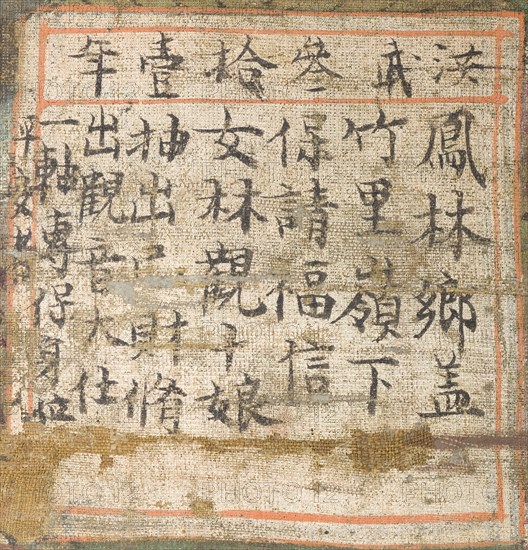 洪武叁拾壹年
鳳林鄉蓋
竹里嶺下
保請福信
女林觀十娘
抽出口財脩
出觀音大仕
一軸專保身位
平安